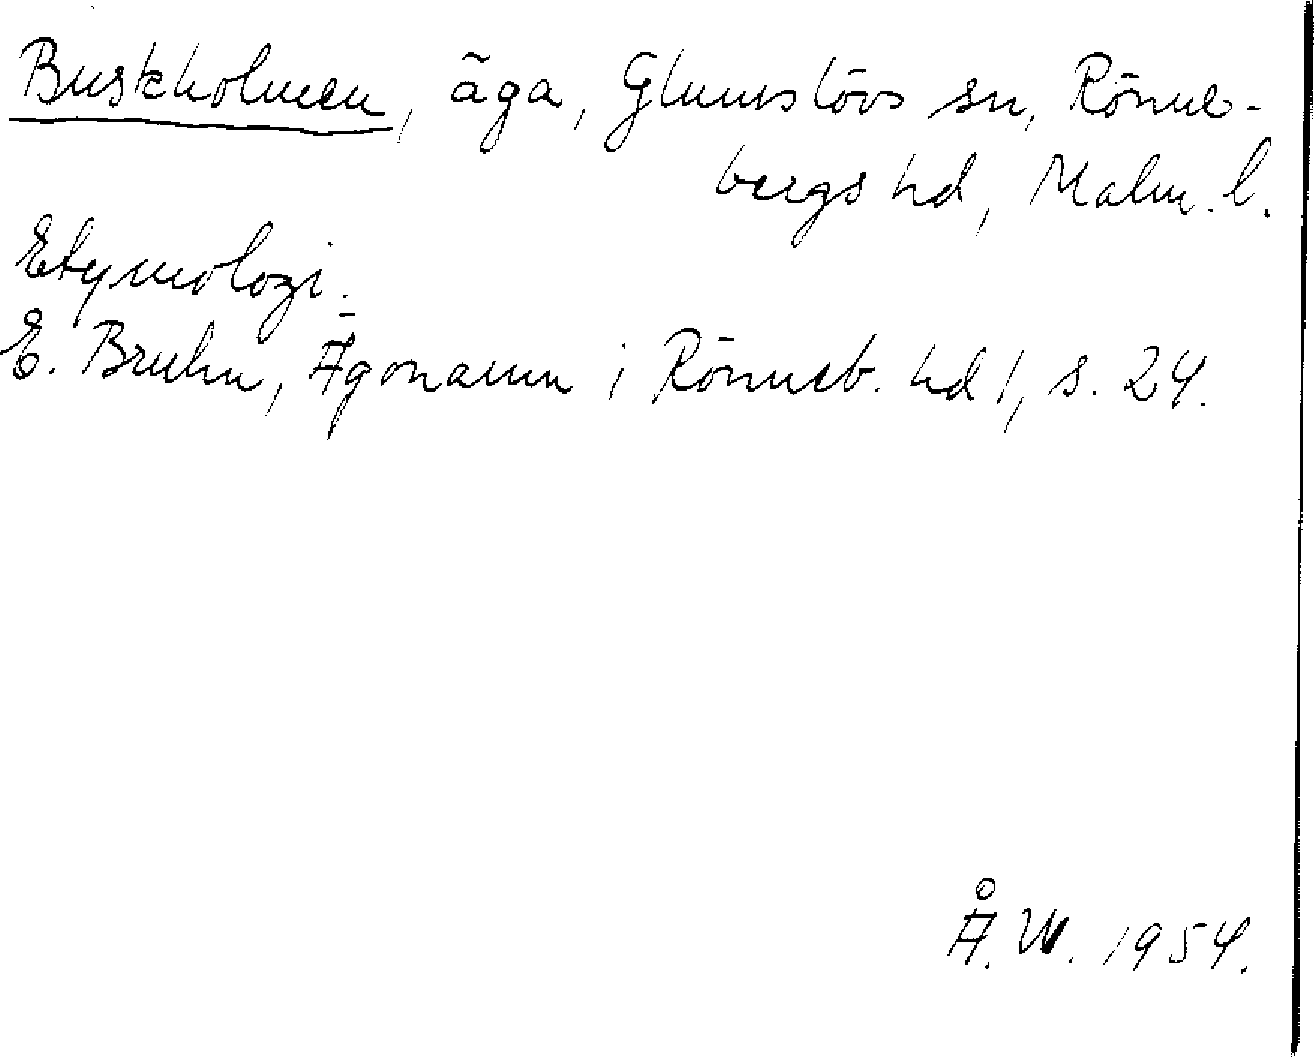 Buskholmen, äga, Glumslövs sn, Rönne-
bergs hd, Malm. l.
Etymologi.
E. Bruhn, Ägonamn i Rönneb. hd 1, s. 24.
Å. W. 1954.